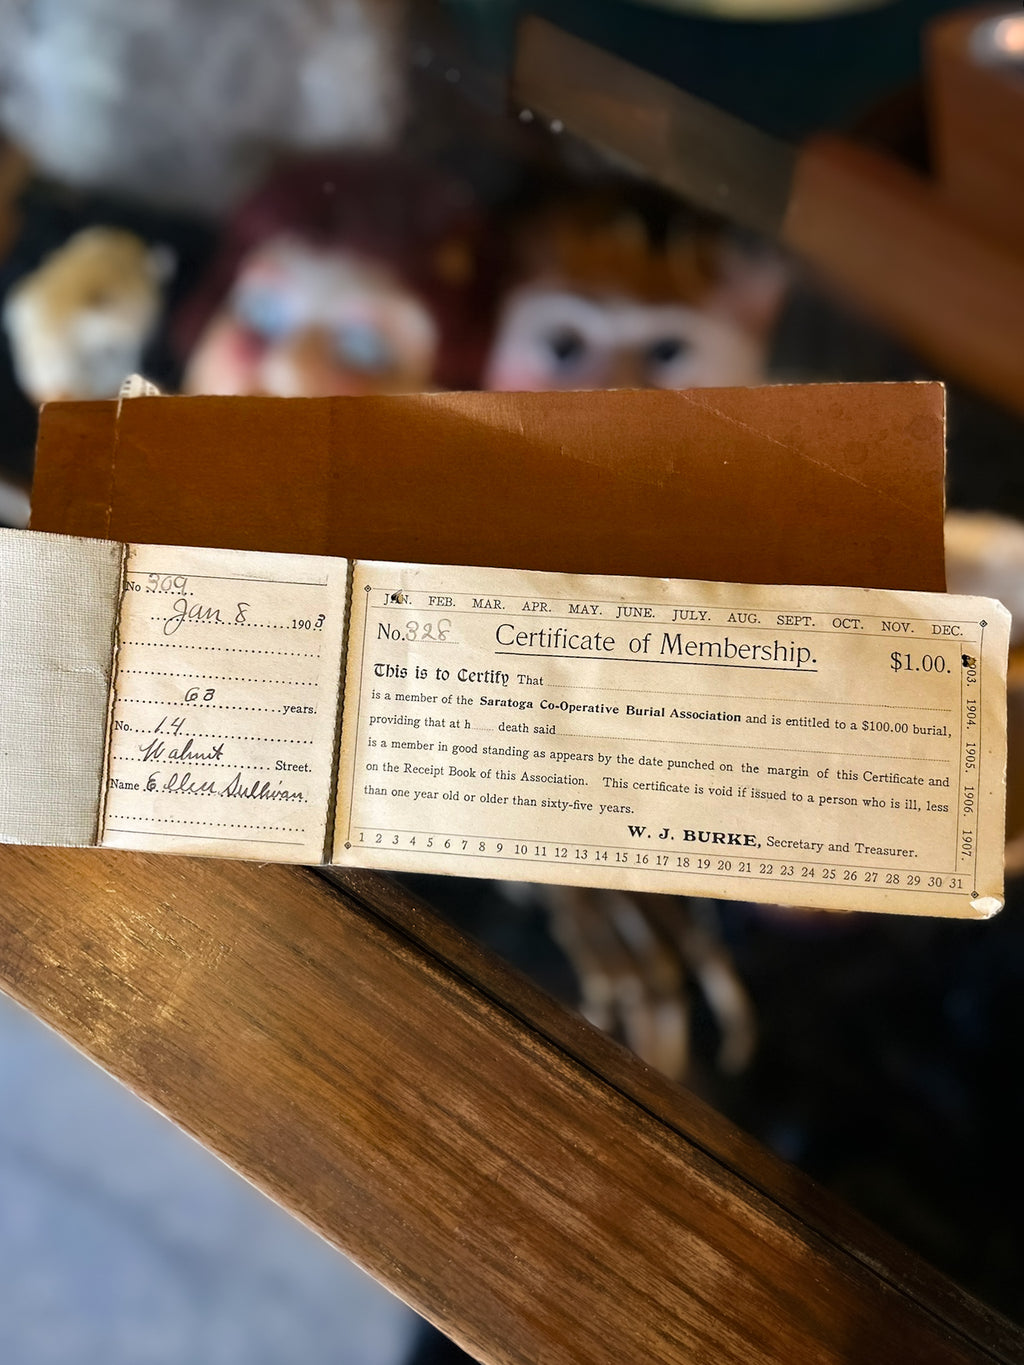 No 309
Jan 8 1903
63 years.
No. 14
Walnut Street.
Name Ellen Sullivan
JAN. FEB. MAR. APR. MAY. JUNE. JULY. AUG. SEPT. OCT. NOV. DEC.
No. 328 Certificate of Membership. $1.00.
This is to Certify That
is a member of the Saratoga Co-Operative Burial Association and is entitled to a $100.00 burial,
providing that at h death said
is a member in good standing as appears by the date punched on the margin of this Certificate and
on the Receipt Book of this Association. This certificate is void if issued to a person who is ill, less
than one year old or older than sixty-five years.
W. J. BURKE, Secretary and Treasurer.
1 2 3 4 5 6 7 8 9 10 11 12 13 14 15 16 17 18 19 20 21 22 23 24 25 26 27 28 29 30 31
1903. 1904. 1905. 1906. 1907.